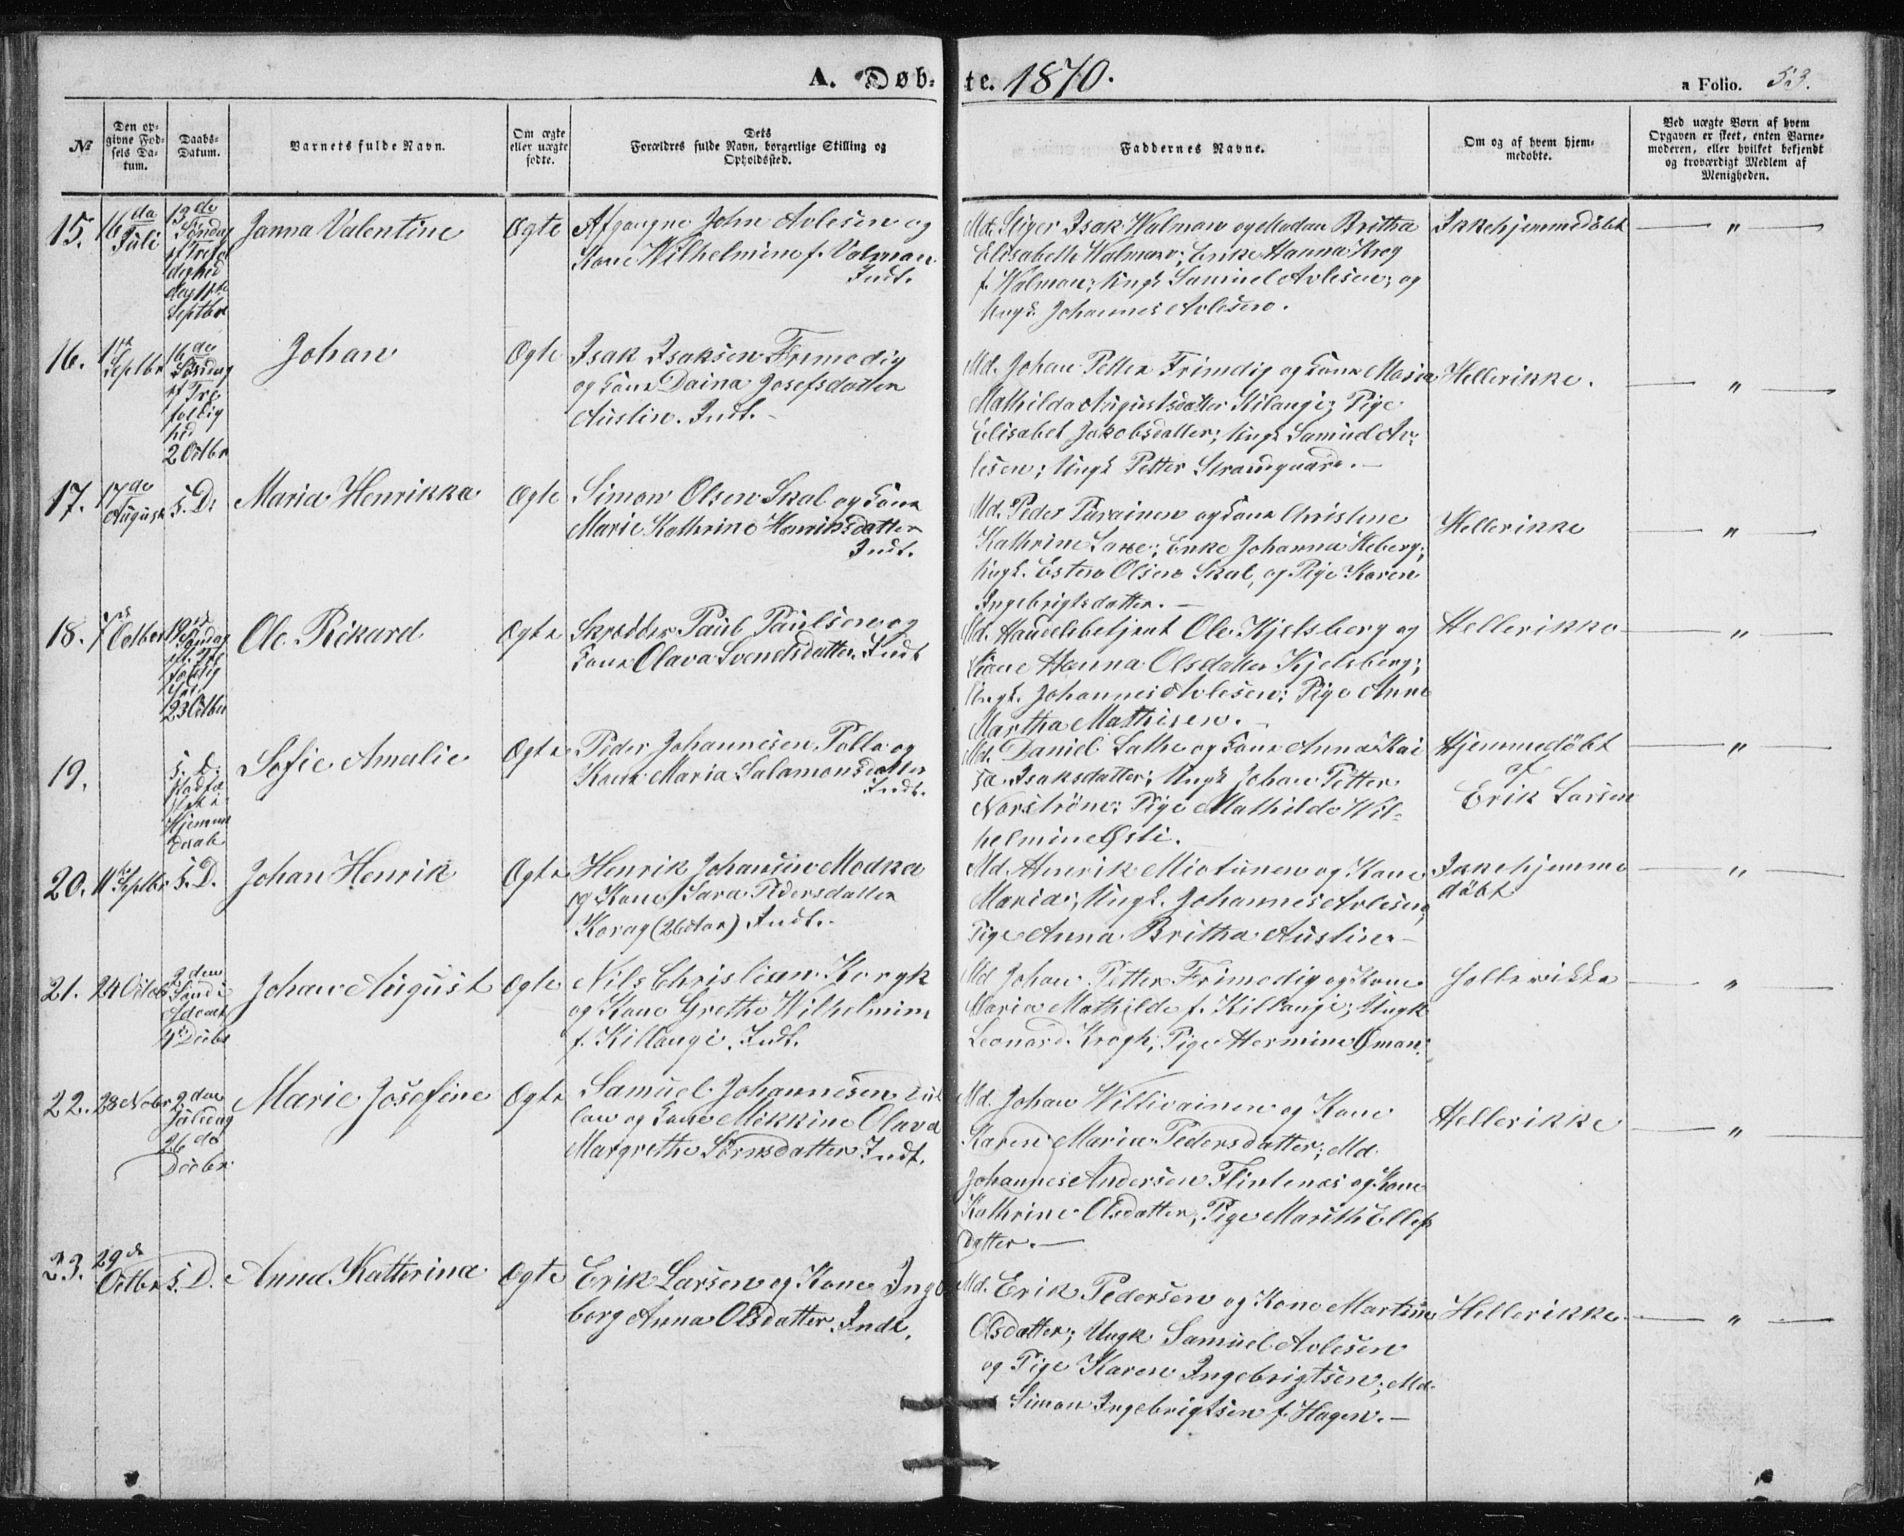 A. Døb-
te. 1870.
a Folio. 53.
No
Den op-
givne Fød-
sels Da-
tum.
Daabs-
Datum.
Barnets fulde Navn.
Om ægte
eller uægte
fødte.
Dets
Forældres fulde Navn, borgerlige Stilling og
Opholdssted.
Faddernes Navne.
Om og af hvem hjem-
medøbte.
Ved uægte Børn af hvem
Opgaven er skeet, enten Barne-
moderen, eller hvilket bekjendt
og troværdigt Medlem af
Menigheden.
15.
16de
Juli
13de
Søndag
ef Trefol
dighed
den 11te
Septbr
Janna Valentine
Ogte
Afgangne John Avlesen og
Kone Wilhelmine f. Valman
Indt.
Isak Walman og Madam Britha
Elisabeth Walman; Enke Hanna Krog
f. Walman; Ungk Samuel Avlesen; og
Ungk. Johannes Avlesen.
Ikkehjemmedöbt
— " —
16.
1ste
Septbr
16de
Søndag
ef Tre
foldig
hed
2 Octbr
Johan
Ogte
Isak Isaksen Frimodig
og Kone Daina Josefsdatter
Austin. Indt.
Md. Johan Petter Frimdig og Kone Maria
Mathilda Augustsdatter Kilangi; Pige
Elisabet Jakobsdatter; Ungk Samuel Av-
lesen; Ungk Petter Strandgaard. —
Hellerikke.
— " —
17.
17de
August
s. D.
Maria Henrikka
Ogte
Simon Olsen Skal og Kone
Marie Kathrine Henriksdatter
Indt.
Md. Peder Pavainen og Kone Christine
Kathrine Laxe; Enke Johanna Heberg;
Ungk. Esten Olsen Skal, og Pige Karen
Ingebrigtsdatter. —
Hellerikke
— " —
18.
7de Octber
19de
Søndag
ef. Tre
foldig
hd.
23 Octber
Ole Rikard
Ogte
Skrædder Paul Paulsen og
Kone Olava Svendsdatter Indt
Md. Handelsbetjent Ole Kjelsberg og
Kone Hanna Olsdatter Kjelsberg;
Ungk. Johannes Avlesen; Pige Anne
Martha Mathisen. —
Hellerikke
— " —
19.
s. D.
Stadfæ
Hjemme
daab
Sofie Amalie
Ogte
Peder Johannesen Palla og
Kone Maria Salamonsdatter
Indt.
Md. Daniel Lathe og Kone Anna Kai
sa Isaksdatter; Ungk Johan Petter
Norström; Pige Mathilde Wil-
helmine Østi.
Hjemmedöbt
af
Erik Larsen
— " —
20.
11te Septbr
s. D.
Johan Henrik
Ogte
Henrik Johansen Modka
og Kone Sara Pedersdatter
Korag (26 Aar) Indt.
Md. Henrik Miotunen og Kone
Maria; Ungk. Johannes Avlesen;
Pige Anna Britha Austin —
Ikkehjemme
döbt
— " —
21.
24 Octob
2den
Sønd i
Advent
4de Decbr
Johan August
Ogte
Nils Christian Korgk
og Kone Grethe Wilhelmine
f. Killangi. Indt.
Md Johan Petter Frimodig og Kone
Maria Mathilde f. Killangi; Ungk
Leonard Krogh; Pige Hermine Öman.
Hellerikke
— " —
22.
28 Nobr
2den
Juledag
26de
Decbr
Marie Josefine
Ogte
Samuel Johannesen
og Kone Mekkine Olava
Margrethe Sörensdatter Indt.
Md. Johan Willivainen og Kone
Karen Maria Pedersdatter; Md.
Johannes Andersen Flintenæs og Kone
Kathrine Olsdatter; Pige Marith Ellefs
datter. —
Hellerikke
— " —
23.
29de
Octbr
s. D.
Anna Katterina
Ogte
Erik Larsen og Kone Inge
borg Anna Olsdatter Indt.
Md. Erik Pedersen og Kone Martine
Olsdatter; Ungk Samuel Avlesen
og Pige Karen Ingebrigtsen; Md.
Simon Ingebrigtsen f. Hagen. —
Hellerikke
— " —